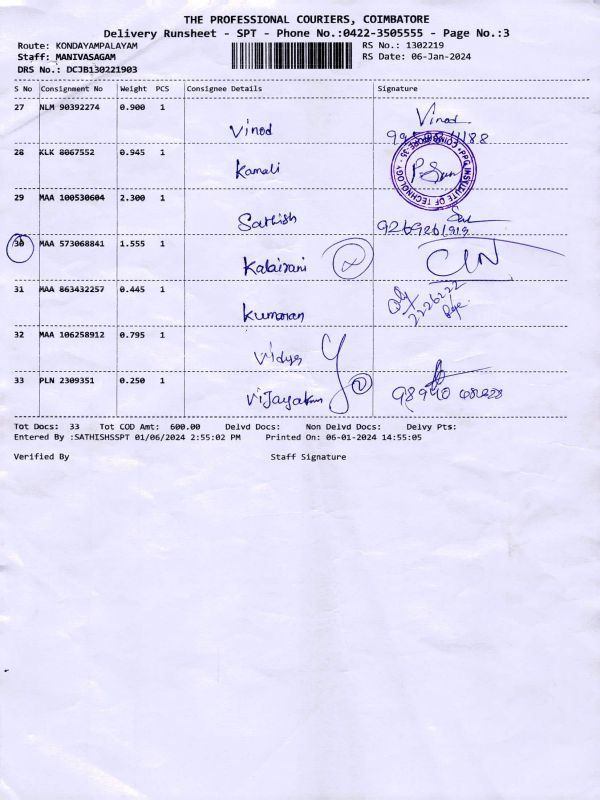 THE PROFESSIONAL COURIERS, COIMBATORE
Delivery Runsheet - SPT - Phone No.:0422-3505555 - Page No.:3
Route: KONDAYAMPALAYAM RS No.: 1302219
Staff: MANIVASAGAM RS Date: 06-Jan-2024
DRS No.: DCJB130221903
S No Consignment No Weight PCS Consignee Details Signature
27 NLM 90392274 0.900 1
Vinod Vinod
28 KLK 8067552 0.945 1
Kamali
PPG INSTITUTE OF TECHNOLOGY COIMBATORE-35
29 MAA 100530604 2.300 1
Sathish 9269261919
30 MAA 573068841 1.555 1
Kalairani
31 MAA 863432257 0.445 1
Kumaran 2226222
32 MAA 106258912 0.795 1
Vidya
33 PLN 2309351 0.250 1
Vijayakum 98940
Tot Docs: 33 Tot COD Amt: 600.00 Delvd Docs: Non Delvd Docs: Delvy Pts:
Entered By :SATHISHSSPT 01/06/2024 2:55:02 PM Printed On: 06-01-2024 14:55:05
Verified By Staff Signature